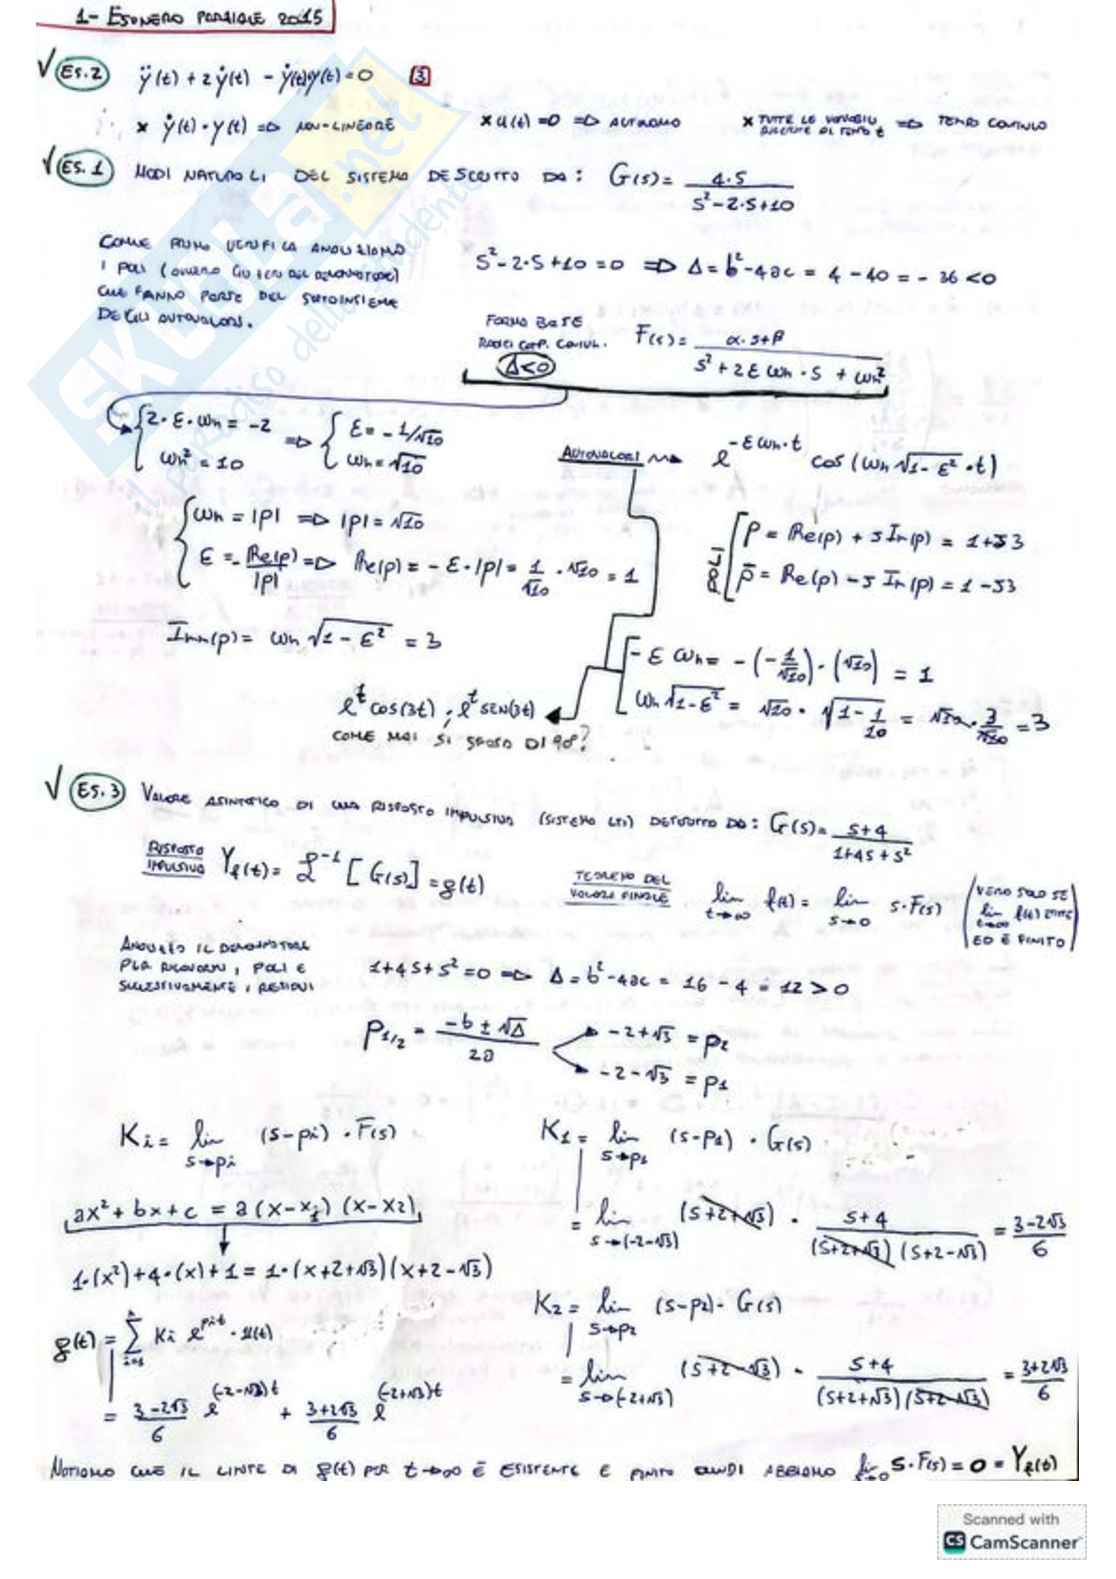 1- ESONERO PARZIALE 2015
√ ES.2 ÿ(t) + 2ẏ(t) - ẏ(t)y(t) = 0 3
× ẏ(t)·y(t) => NON-LINEARE × u(t) = 0 => AUTONOMO × TUTTE LE VARIABILI DIPENDONO DAL TEMPO t => TEMPO CONTINUO
√ ES.1 MODI NATURALI DEL SISTEMA DESCRITTO DA: G(s) = 4·s / s²-2·s+10
COME PRIMA VERIFICA ANALIZZIAMO
I POLI (OVVERO GLI ZERI DEL DENOMINATORE)
CHE FANNO PARTE DEL SOTTOINSIEME
DEGLI AUTOVALORI.
s²-2·s+10 = 0 => Δ = b²-4ac = 4-40 = -36 < 0
FORMA BASE
RADICI COMP. CONIUG.
Δ<0
F(s) = α·s+β / s²+2ε ωn·s + ωn²
{ 2·ε·ωn = -2 => { ε = -1/√10
ωn² = 10 ωn = √10
AUTOVALORI e^(-εωn·t) cos(ωn√(1-ε²)·t)
{ ωn = |p| => |p| = √10
ε = -Re(p)/|p| => Re(p) = -ε·|p| = 1/√10 · √10 = 1
POLI [ p = Re(p) + J Im(p) = 1+J3
p̄ = Re(p) - J Im(p) = 1-J3
Im(p) = ωn √(1-ε²) = 3
-ε ωn = -(-1/√10)·(√10) = 1
ωn√(1-ε²) = √10 · √(1-1/10) = √10 · 3/√10 = 3
e^t cos(3t) ; e^t SEN(3t)
COME MAI SI SFASA DI 90°?
√ ES.3 VALORE ASINTOTICO DI UNA RISPOSTA IMPULSIVA (SISTEMA LTI) DESCRITTO DA: G(s) = s+4 / 1+4s+s²
RISPOSTA
IMPULSIVA
Yf(t) = ℒ⁻¹[G(s)] = g(t)
TEOREMA DEL
VALORE FINALE
lim t→∞ f(t) = lim s→0 s·F(s)
(VERO SOLO SE
lim t→∞ f(t) ESISTE
ED È FINITO)
ANALIZZO IL DENOMINATORE
PER RICAVARNE I POLI E
SUCCESSIVAMENTE I RESIDUI
1+4s+s² = 0 => Δ = b²-4ac = 16-4 = 12 > 0
P1/2 = -b±√Δ / 2a
-2+√3 = p2
-2-√3 = p1
Ki = lim s→pi (s-pi)·F(s)
K1 = lim s→p1 (s-p1)·G(s)
ax²+bx+c = a(x-x1)(x-x2)
= lim s→(-2-√3) (s+2+√3) · s+4 / (s+2+√3)(s+2-√3) = 3-2√3 / 6
1·(x²)+4·(x)+1 = 1·(x+2+√3)(x+2-√3)
K2 = lim s→p2 (s-p2)·G(s)
g(t) = Σ i=1 Ki e^(pi t)·u(t)
= lim s→(-2+√3) (s+2-√3) · s+4 / (s+2+√3)(s+2-√3) = 3+2√3 / 6
= 3-2√3 / 6 e^(-2-√3)t + 3+2√3 / 6 e^(-2+√3)t
NOTIAMO CHE IL LIMITE DI g(t) PER t→∞ È ESISTENTE E FINITO QUINDI ABBIAMO lim s→0 s·F(s) = 0 = Yf(t)
SKUOLA.net
il portale dello studente
Scanned with
CS CamScanner